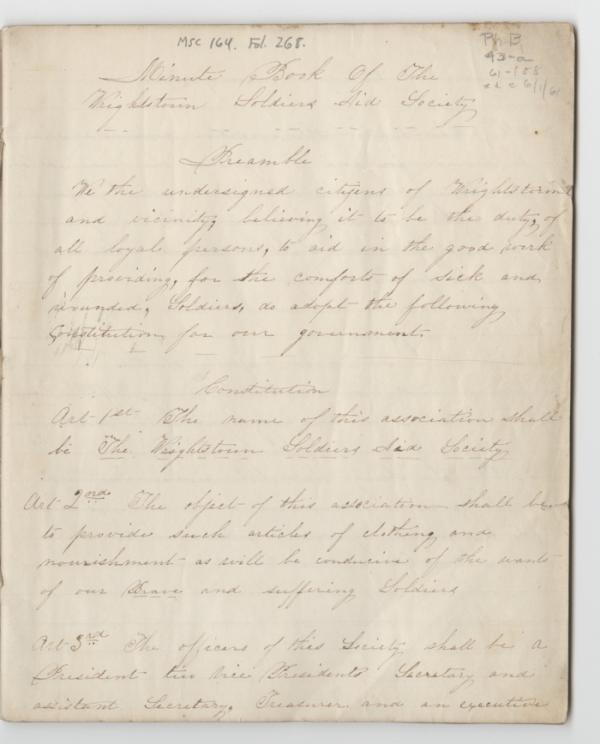 Msc 164. Fol. 268.
Ph B
43-a
61-188
Minute Book Of The
Wrightstown Soldiers Aid Society
Preamble
We the undersigned citizens of Wrightstown
and vicinity, believing it to be the duty, of
all loyal persons, to aid in the good work
of providing, for the comforts of sick and
wounded, Soldiers, do adopt the following
Constitution for our government.
Constitution
Art 1st The name of this association shall
be The Wrightstown Soldiers Aid Society
Art 2ond The object of this association shall be
to provide such articles of clothing and
nourishment as will be conducive of the wants
of our Brave and suffering Soldiers
Art 3rd The officers of this Society shall be a
President two Vice Presidents Secretary and
assistant Secretary, Treasurer and an executive